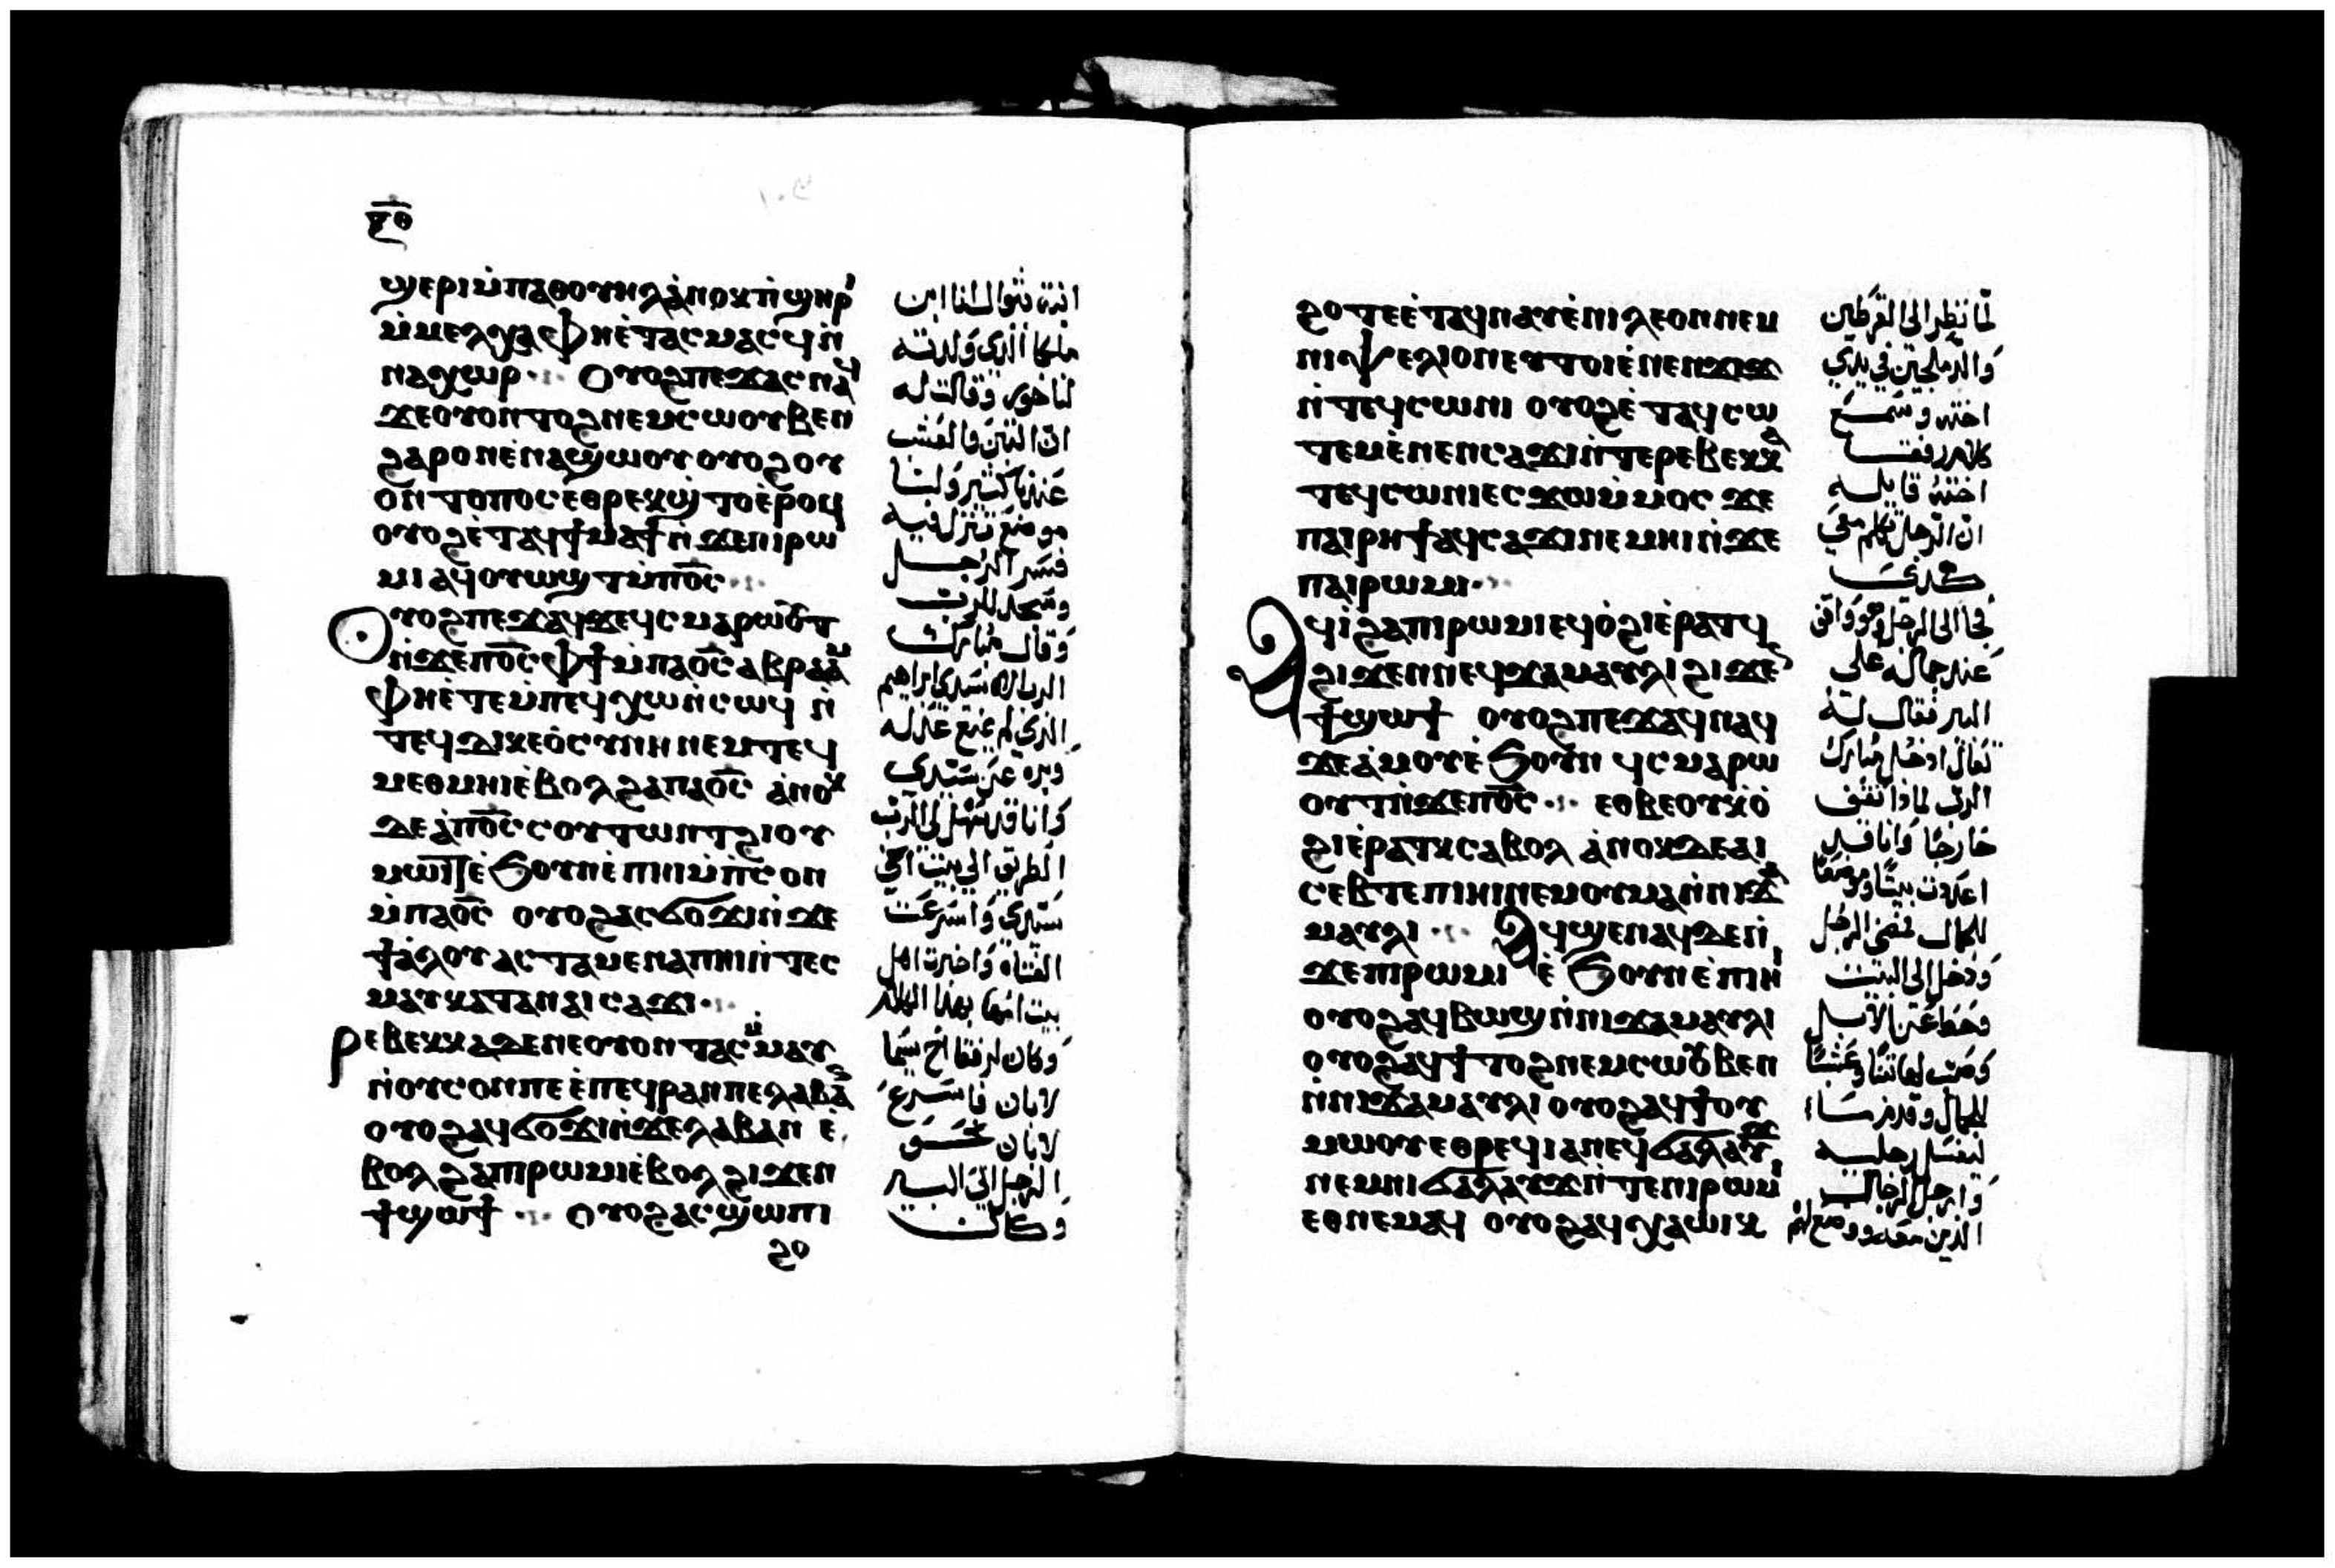 ϣⲉⲣⲓ ⲙ̇ⲡⲁⲑⲟⲩⲏⲗ ⲁ̇ⲛⲟⲕ ⲡ̇ϣⲏⲣⲓ
ⲙ̇ⲙⲉⲗⲭⲁ ⲫⲏⲉ̇ⲧⲁⲥⲙⲁⲥϥ ⲛ̇
ⲛⲁⲭⲱⲣ ⲟⲩⲟϩ ⲡⲉϫⲁⲥ ⲛⲁϥ
ϫⲉ ⲟⲩⲟⲛ ⲧⲟϩ ⲛⲉⲙ ⲥⲱⲟⲩⲃⲉⲛ
ϩⲁⲣⲟⲛ ⲉ̇ⲛⲁϣⲱⲟⲩ ⲟⲩⲟϩ ⲟⲩ
ⲟⲛ ⲧⲟⲡⲟⲥ ⲉⲑⲣⲉⲕϣ̇ⲧⲟ ⲉ̇ⲣⲟϥ
ⲟⲩⲟϩ ⲉ̇ⲧⲁϥϯⲙⲁϯ ⲛ̇ϫⲉ ⲡⲓⲣⲱ
ⲙⲓ ⲁϥⲟⲩⲱϣⲧ ⲙ̇ⲡⲟ̅ⲥ̅
ⲟⲩⲟϩ ⲡⲉϫⲁϥ ϫⲉ ϥⲥⲙⲁⲣⲱⲟⲩⲧ
ⲛ̇ϫⲉ ⲡⲟ̅ⲥ̅ ⲫϯ ⲙ̇ⲡⲁⲟ̅ⲥ̅ ⲁⲃⲣⲁⲁⲙ
ⲫⲏⲉ̇ⲧⲉ ⲙ̇ⲡⲉϥⲭⲱ ⲛ̇ⲥⲱϥ ⲛ̇
ⲧⲉϥⲇⲓⲕⲉⲟ̇ⲥⲩⲛⲏ ⲛⲉⲙ ⲧⲉϥ
ⲙⲉⲑⲙⲏⲓ ⲉ̇ⲃⲟⲗ ϩⲁ ⲡⲁⲟ̅ⲥ̅ ⲁ̇ⲛⲟⲕ
ⲇⲉ ⲁ̇ⲡⲟ̅ⲥ̅ ⲥⲟⲩⲧⲱⲛⲧ ϩⲓ ⲟⲩ
ⲙⲱⲓⲧ ⲉ̇ϧⲟⲩⲛ ⲉ̇ⲡⲏⲓ ⲙ̇ⲡ̇ⲥⲟⲛ
ⲙ̇ⲡⲁⲟ̅ⲥ̅ ⲟⲩⲟϩ ⲁⲥϭⲟϫⲓ ⲛ̇ϫⲉ
ϯⲁ̇ⲗⲟⲩ ⲁⲥⲧⲁⲙⲉ ⲛⲁ ⲡⲏⲓ ⲛ̇ⲧⲉⲥ
ⲙⲁⲩ ⲕⲁⲧⲁ ⲛⲁⲓ ⲥⲁϫⲓ
ⲣⲉⲃⲉⲕⲕⲁ ⲇⲉ ⲛⲉ ⲟⲩⲟⲛ ⲧⲁⲥ ⲙ̇ⲙⲁⲩ
ⲛ̇ⲟⲩⲥⲟⲛ ⲡⲉ ⲉ̇ⲡⲉϥⲣⲁⲛ ⲡⲉ ⲗⲁⲃⲁⲛ
ⲟⲩⲟϩ ⲁϥϭⲟϫⲓ ⲛ̇ϫⲉ ⲗⲁⲃⲁⲛ ⲉ̇
ⲃⲟⲗ ϩⲁ ⲡⲓⲣⲱⲙⲓ ⲉ̇ⲃⲟⲗ ϩⲓϫⲉⲛ
ϯϣⲱϯ ⲟⲩⲟϩ ⲁⲥϣⲱⲡⲓ
ϩⲟ
ابنة بثوال انا ابن
ملكا الذي ولدته
لناخور وقالت له
ان التبن والعشب
عندنا كثير ولنا
موضع تنزل فيه
فسر الرجل
وسجد للرب
وقال مبارك
الرب اله سيدي ابراهيم
الذي لم يمنع عدله
وبره عن سيدي
وانا قد سهل لي الرب
الطريق الى بيت اخي
سيدي واسرعت
الفتاة واخبرت اهل
بيت امها بهذا الكلام
وكان لرفقا اخ يسما
لابان فاسرع
لابان نحو
الرجل الى البير
وكان
ϩⲟⲧⲉ ⲉ̇ⲧⲁϥⲛⲁⲩ ⲉ̇ⲛⲓⲗⲉⲟⲛ ⲛⲉⲙ
ⲛⲓⲯⲉⲗⲓⲟⲛ ⲉⲩⲧⲟⲓ ⲉ̇ⲛⲉⲛϫⲓϫ
ⲛ̇ⲧⲉϥⲥⲱⲛⲓ ⲟⲩⲟϩ ⲉ̇ⲧⲁϥⲥⲱ
ⲧⲉⲙ ⲉ̇ⲛⲉⲛⲥⲁϫⲓ ⲛ̇ⲧⲉ ⲣⲉⲃⲉⲕⲕⲁ
ⲧⲉϥⲥⲱⲛⲓ ⲉⲥϫⲱ ⲙ̇ⲙⲟⲥ ϫⲉ
ⲡⲁⲓⲣⲏϯ ⲁϥⲥⲁϫⲓ ⲛⲉⲙⲏⲓ ⲛ̇ϫⲉ
ⲡⲁⲓⲣⲱⲙⲓ
ⲁϥⲓ̇ ϩⲁ ⲡⲓⲣⲱⲙⲓ ⲉϥⲟ̇ϩⲓ ⲉ̇ⲣⲁⲧϥ
ϩⲓϫⲉⲛ ⲛⲉϥϫⲁⲙⲁⲩⲗⲓ ϩⲓϫⲉⲛ
ϯϣⲱϯ ⲟⲩⲟϩ ⲡⲉϫⲁϥ ⲛⲁϥ
ϫⲉ ⲁ̇ⲙⲟⲩ ⲉ̇ϧⲟⲩⲛ ϥⲥⲙⲁⲣⲱ
ⲟⲩⲧ ⲛ̇ϫⲉ ⲡⲟ̅ⲥ̅ ⲉⲑⲃⲉ ⲟⲩ ⲕⲟ̇
ϩⲓ ⲉ̇ⲣⲁⲧⲕ ⲥⲁⲃⲟⲗ ⲁ̇ⲛⲟⲕ ⲇⲉ ⲁⲓ
ⲥⲉⲃⲧⲉ ⲡⲓⲏⲓ ⲛⲉⲙ ⲟⲩⲙⲁ ⲛ̇ⲛⲓϫⲁ
ⲙⲁⲩⲗⲓ ⲁϥϣⲉⲛⲁϥ ⲇⲉ ⲛ̇
ϫⲉ ⲡⲓⲣⲱⲙⲓ ⲉ̇ϧⲟⲩⲛ ⲉ̇ⲡⲓⲏⲓ
ⲟⲩⲟϩ ⲁϥⲃⲱϣ ⲛ̇ⲛⲓϫⲁⲙⲁⲩⲗⲓ
ⲟⲩⲟϩ ⲁϥϯ ⲧⲟϩ ⲛⲉⲙ ⲥⲱⲟⲩⲃⲉⲛ
ⲛ̇ⲛⲓϫⲁⲙⲁⲩⲗⲓ ⲟⲩⲟϩ ⲁϥϯ ⲟⲩ
ⲙⲱⲟⲩ ⲉⲑⲣⲉϥⲓⲁ ⲛⲉϥϭⲁⲗⲁⲩϫ
ⲛⲉⲙ ⲛⲓϭⲁⲗⲁⲩϫ ⲛ̇ⲧⲉ ⲛⲓⲣⲱⲙⲓ
ⲉⲑⲛⲉⲙⲁϥ ⲟⲩⲟϩ ⲁϥⲭⲁ ⲱⲓⲕ
لما نظر الى القرطين
والدملجين في يدي
اخته وسمع
كلام رفقا
اخته قايله
ان الرجل كلم معي
هكذى
فجا الى الرجل وهو واقف
عند جماله على
البير فقال له
تعال ادخل مبارك
الرب لماذا تقف
خارجا وانا قد
اعددت بيتا وموضعا
للجمال فمضى الرجل
ودخل الى البيت
وحط عن الابل
وصب لها تبنا وعشبا
للجمال وقدم ماء
ليغسل رجليه
وارجل الرجال
الذين معه ووضع لهم